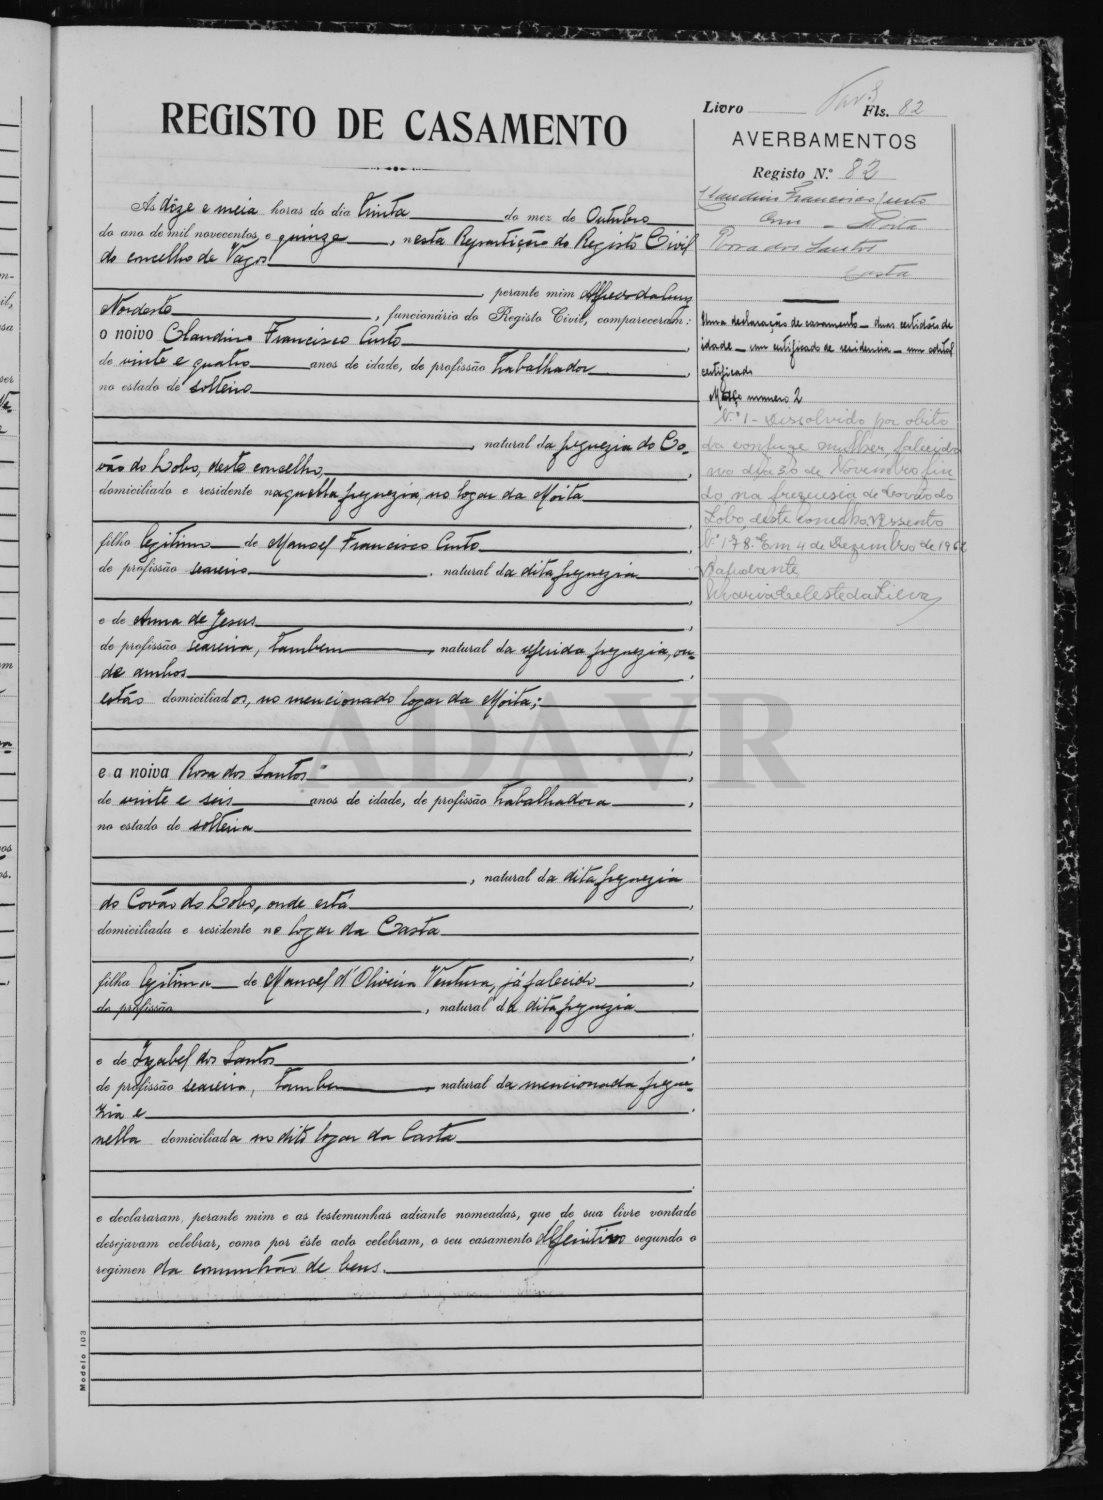 Livro Fls. 82
REGISTO DE CASAMENTO
AVERBAMENTOS
Registo N.º 82
Ás dôze e meia horas do dia trinta do mez de Outubro
do ano de mil novecentos e quinze, nesta Repartição do Registo Civil
do concelho de Vagos
, perante mim Alfredo da Cruz
Nordeste, funcionário do Registo Civil, compareceram:
o noivo Claudino Francisco Curto,
de vinte e quatro anos de idade, de profissão trabalhador,
no estado de solteiro
, natural da freguezia do Co-
vão do Lobo, deste concelho,
domiciliado e residente naquella freguezia, no logar da Moita
,
filho legitimo de Manoel Francisco Curto,
de profissão seareiro, natural da dita freguezia
,
e de Anna de Jesus,
de profissão seareira, tambem natural da referida freguezia, on-
de ambos,
estão domiciliados, no mencionado logar da Moita;
,
e a noiva Rosa dos Santos,
de vinte e seis anos de idade, de profissão trabalhadora,
no estado de solteira
, natural da dita freguezia
do Covão do Lobo, onde está,
domiciliada e residente no logar da Casta
,
filha legitima de Manoel d'Oliveira Ventura, já falecido,
de profissão, natural da dita freguezia
,
e de Izabel dos Santos,
de profissão seareira, tambem natural da mencionada fregue-
zia e,
nella domiciliada no dito logar da Casta
.
e declararam, perante mim e as testemunhas adiante nomeadas, que de sua livre vontade
desejavam celebrar, como por êste acto celebram, o seu casamento definitivo segundo o
regimen da comunhão de bens.
Modelo 103
Claudino Francisco Curto
com - Moita
Rosa dos Santos
Casta
Uma declaração de casamento - duas certidões de
idade - um certificado de residencia - um edital
certificado
Maço numero 2
N.º 1 - Dissolvido por obito
da conjuge mulher, falecida
no dia 30 de Novembro fin
do na freguesia de Covão do
Lobo, deste concelho, Assento
N.º 178. Em 4 de Dezembro de 1962
Ajudante
Maria Celeste da Silva
ADAVR